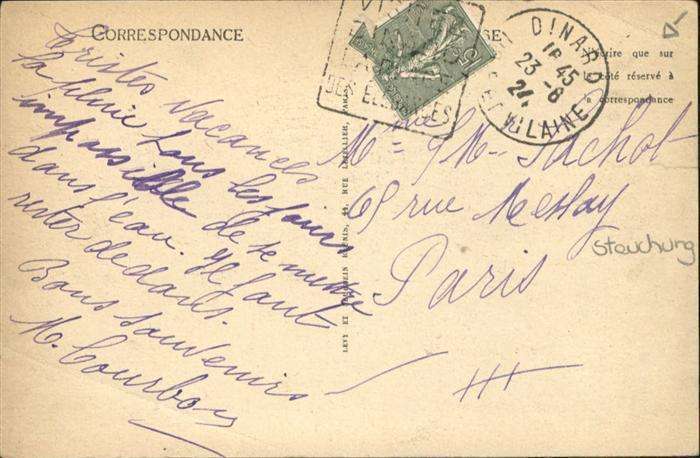 CORRESPONDANCE
Tristes vacances
la pluie tous les jours
impossible de se mettre
dans l'eau. Il faut
rester dedans.
Bons souvenirs
M. Courbon
DINARD
18 45
23 - 8
24
ET VILAINE
N'écrire que sur
le côté réservé à
la correspondance
Pachot
65 rue Meslay
Paris
Steuchung
LEVY ET NEURDEIN RÉUNIS, 44, RUE LETELLIER, PARIS